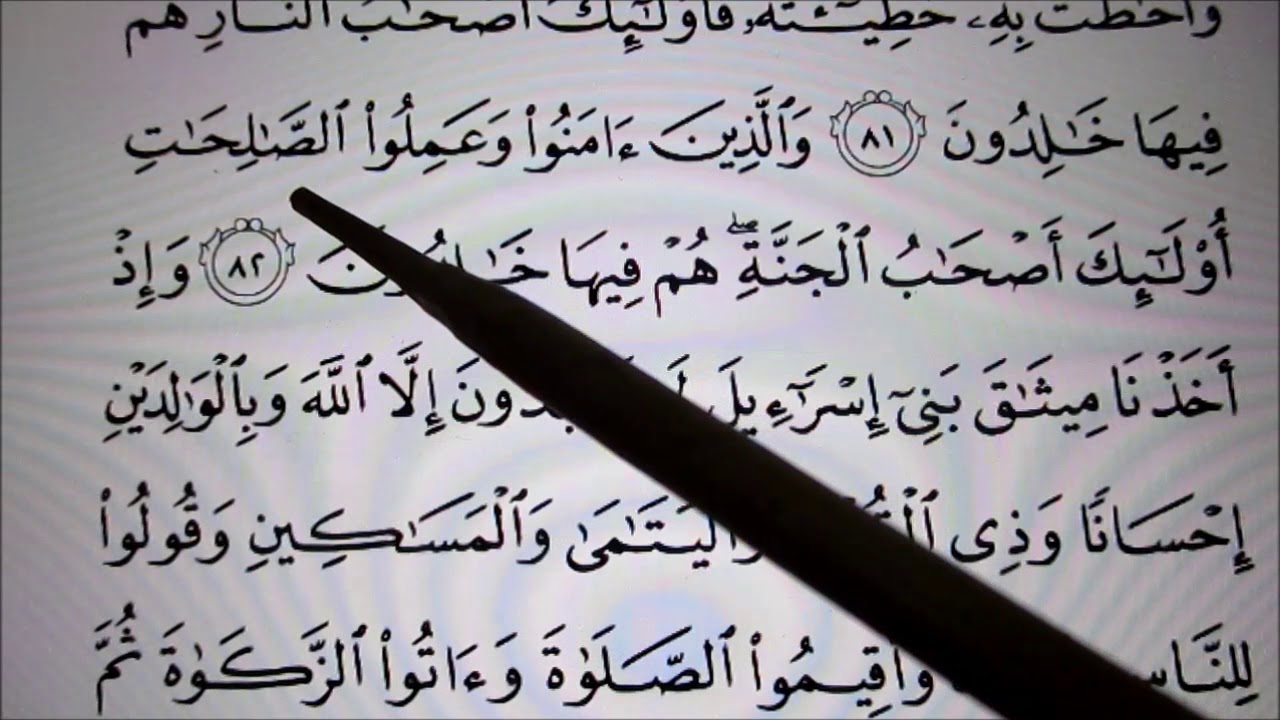 وَأَحَٰطَتْ بِهِۦ خَطِيٓـَٔتُهُۥ فَأُو۟لَٰٓئِكَ أَصْحَٰبُ ٱلنَّارِ هُمْ
فِيهَا خَٰلِدُونَ ٨١ وَٱلَّذِينَ ءَامَنُوا۟ وَعَمِلُوا۟ ٱلصَّٰلِحَٰتِ
أُو۟لَٰٓئِكَ أَصْحَٰبُ ٱلْجَنَّةِ ۖ هُمْ فِيهَا ٨٢ وَإِذْ
أَخَذْنَا مِيثَٰقَ بَنِىٓ إِسْرَٰٓءِيلَ إِلَّا ٱللَّهَ وَبِٱلْوَٰلِدَيْنِ
إِحْسَانًا وَذِى وَٱلْيَتَٰمَىٰ وَٱلْمَسَٰكِينِ وَقُولُوا۟
لِلنَّاسِ وَأَقِيمُوا۟ ٱلصَّلَوٰةَ وَءَاتُوا۟ ٱلزَّكَوٰةَ ثُمَّ